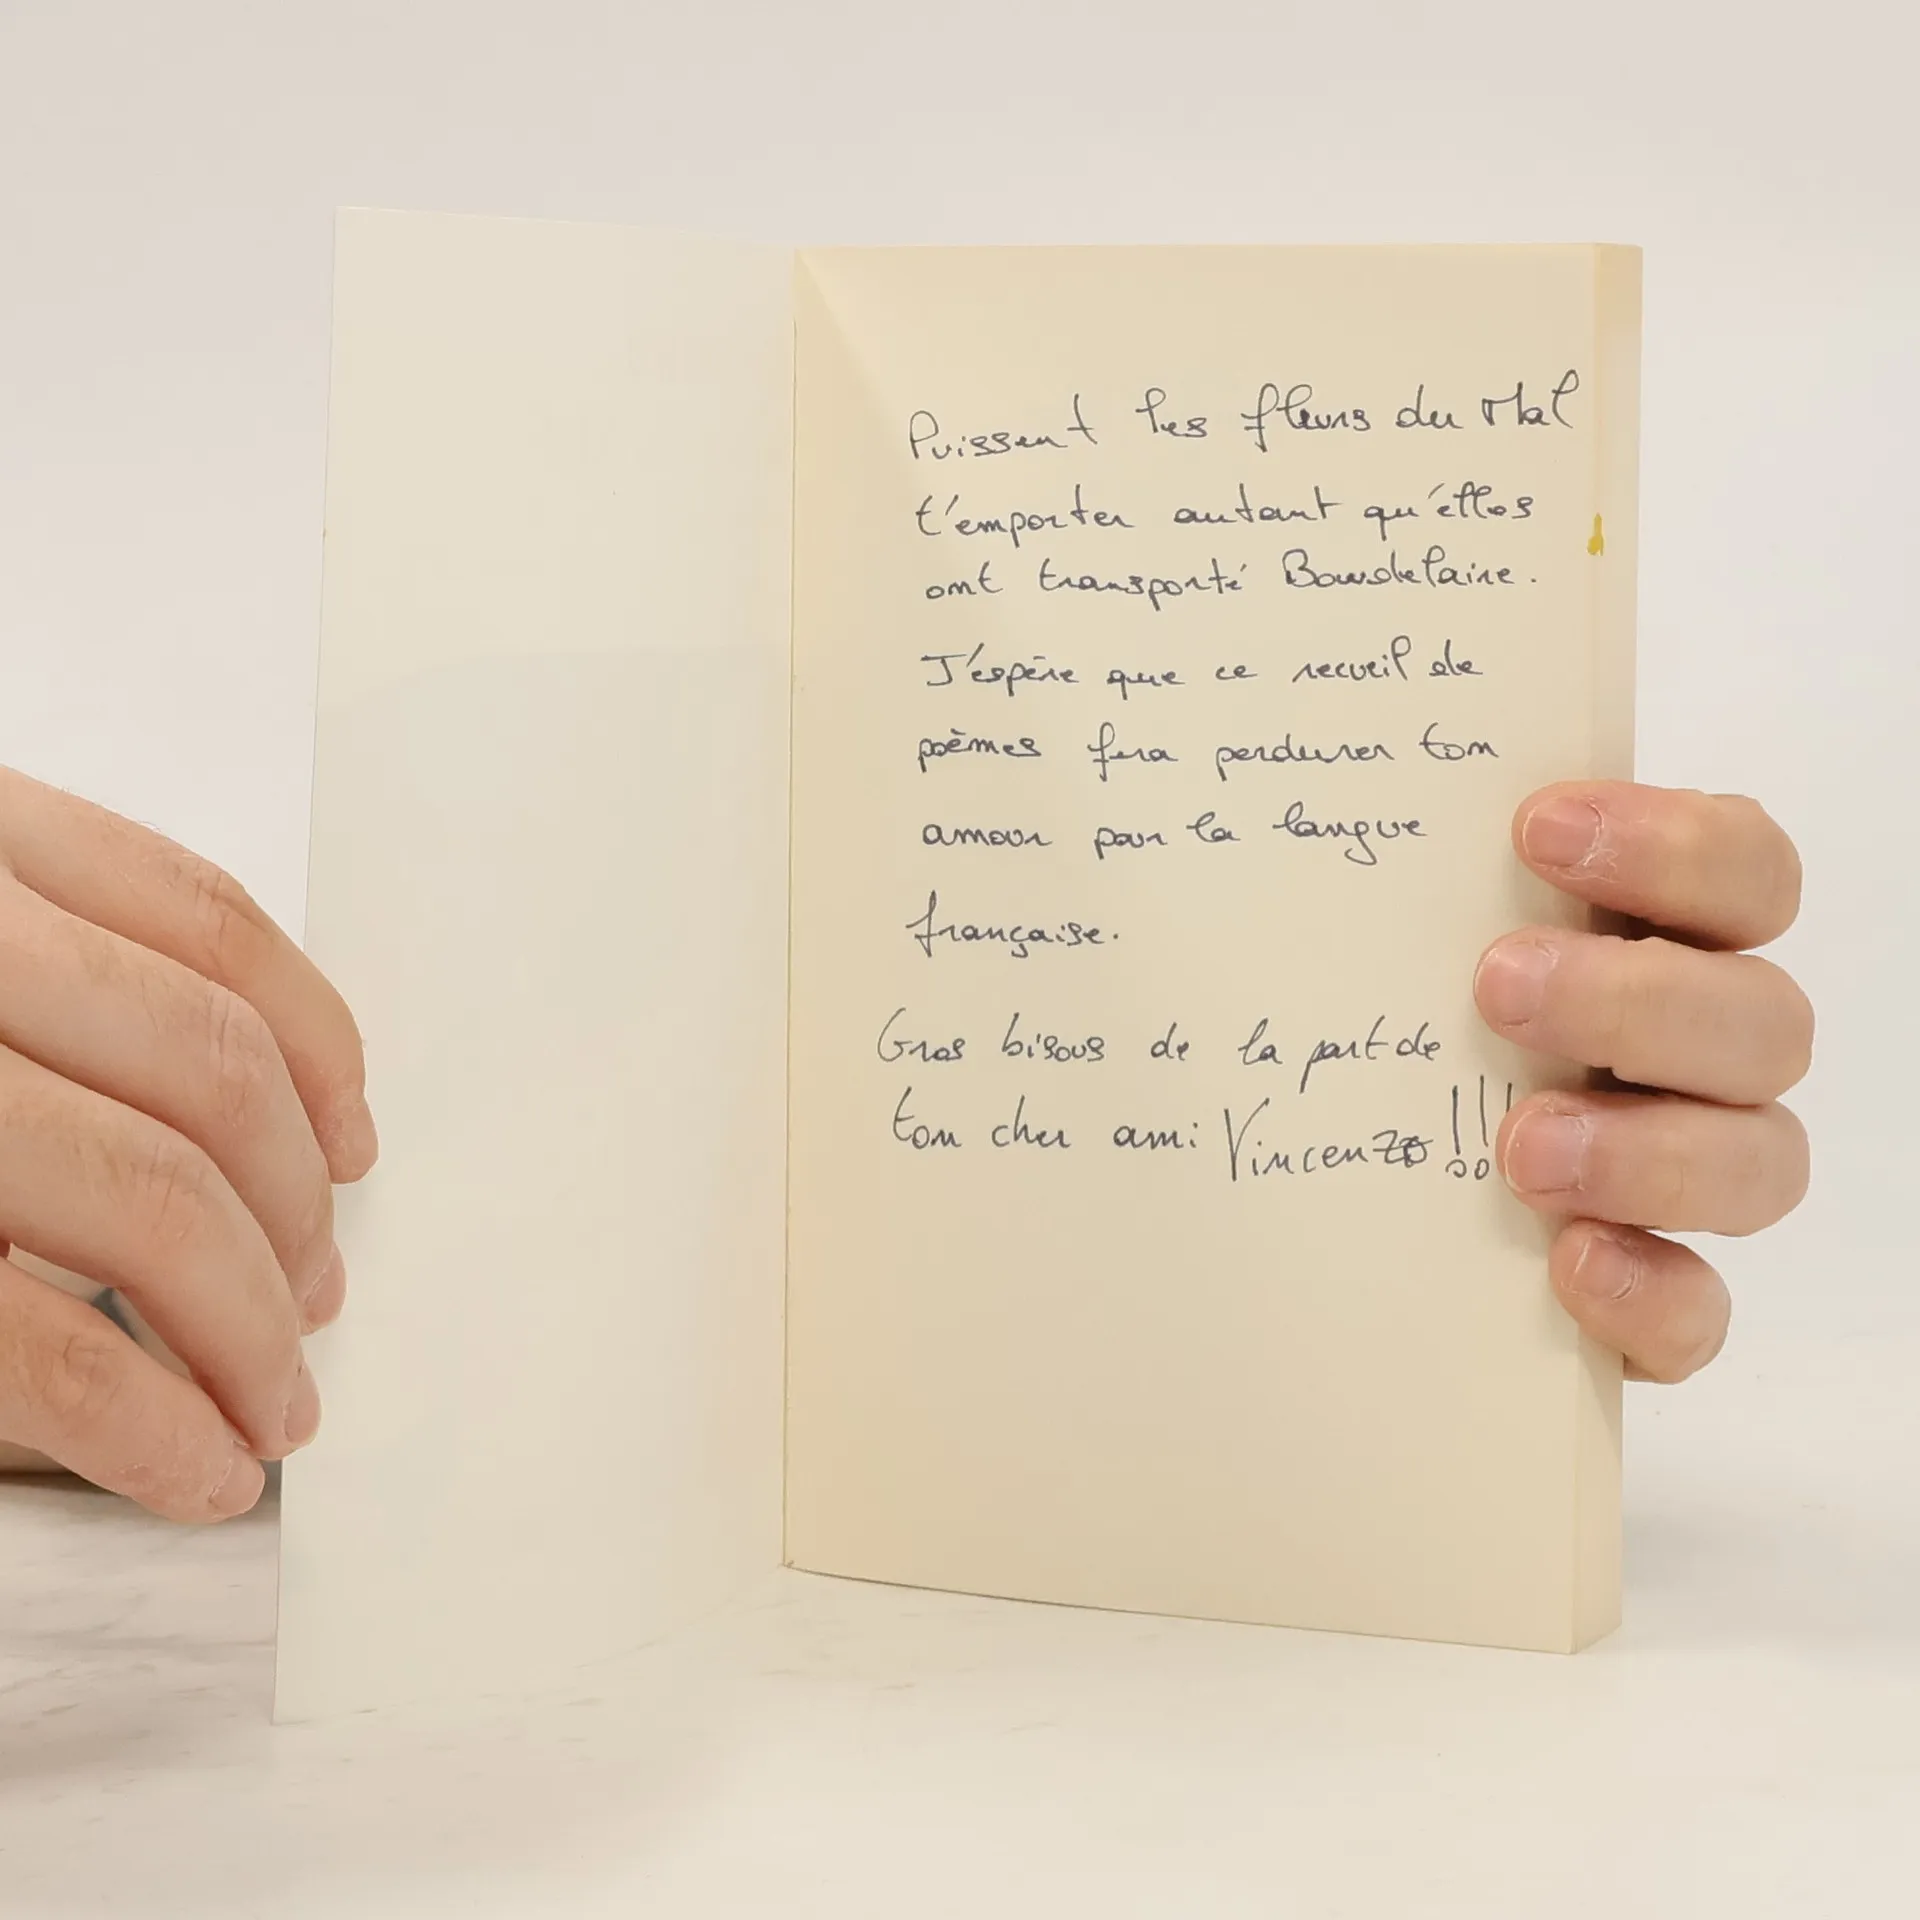 Puissent les fleurs du Mal
t'emporter autant qu'elles
ont transporté Baudelaire.
J'espère que ce recueil de
poèmes fera perdurer ton
amour pour la langue
française.
Gros bisous de la part de
ton cher ami Vincenzo !!!